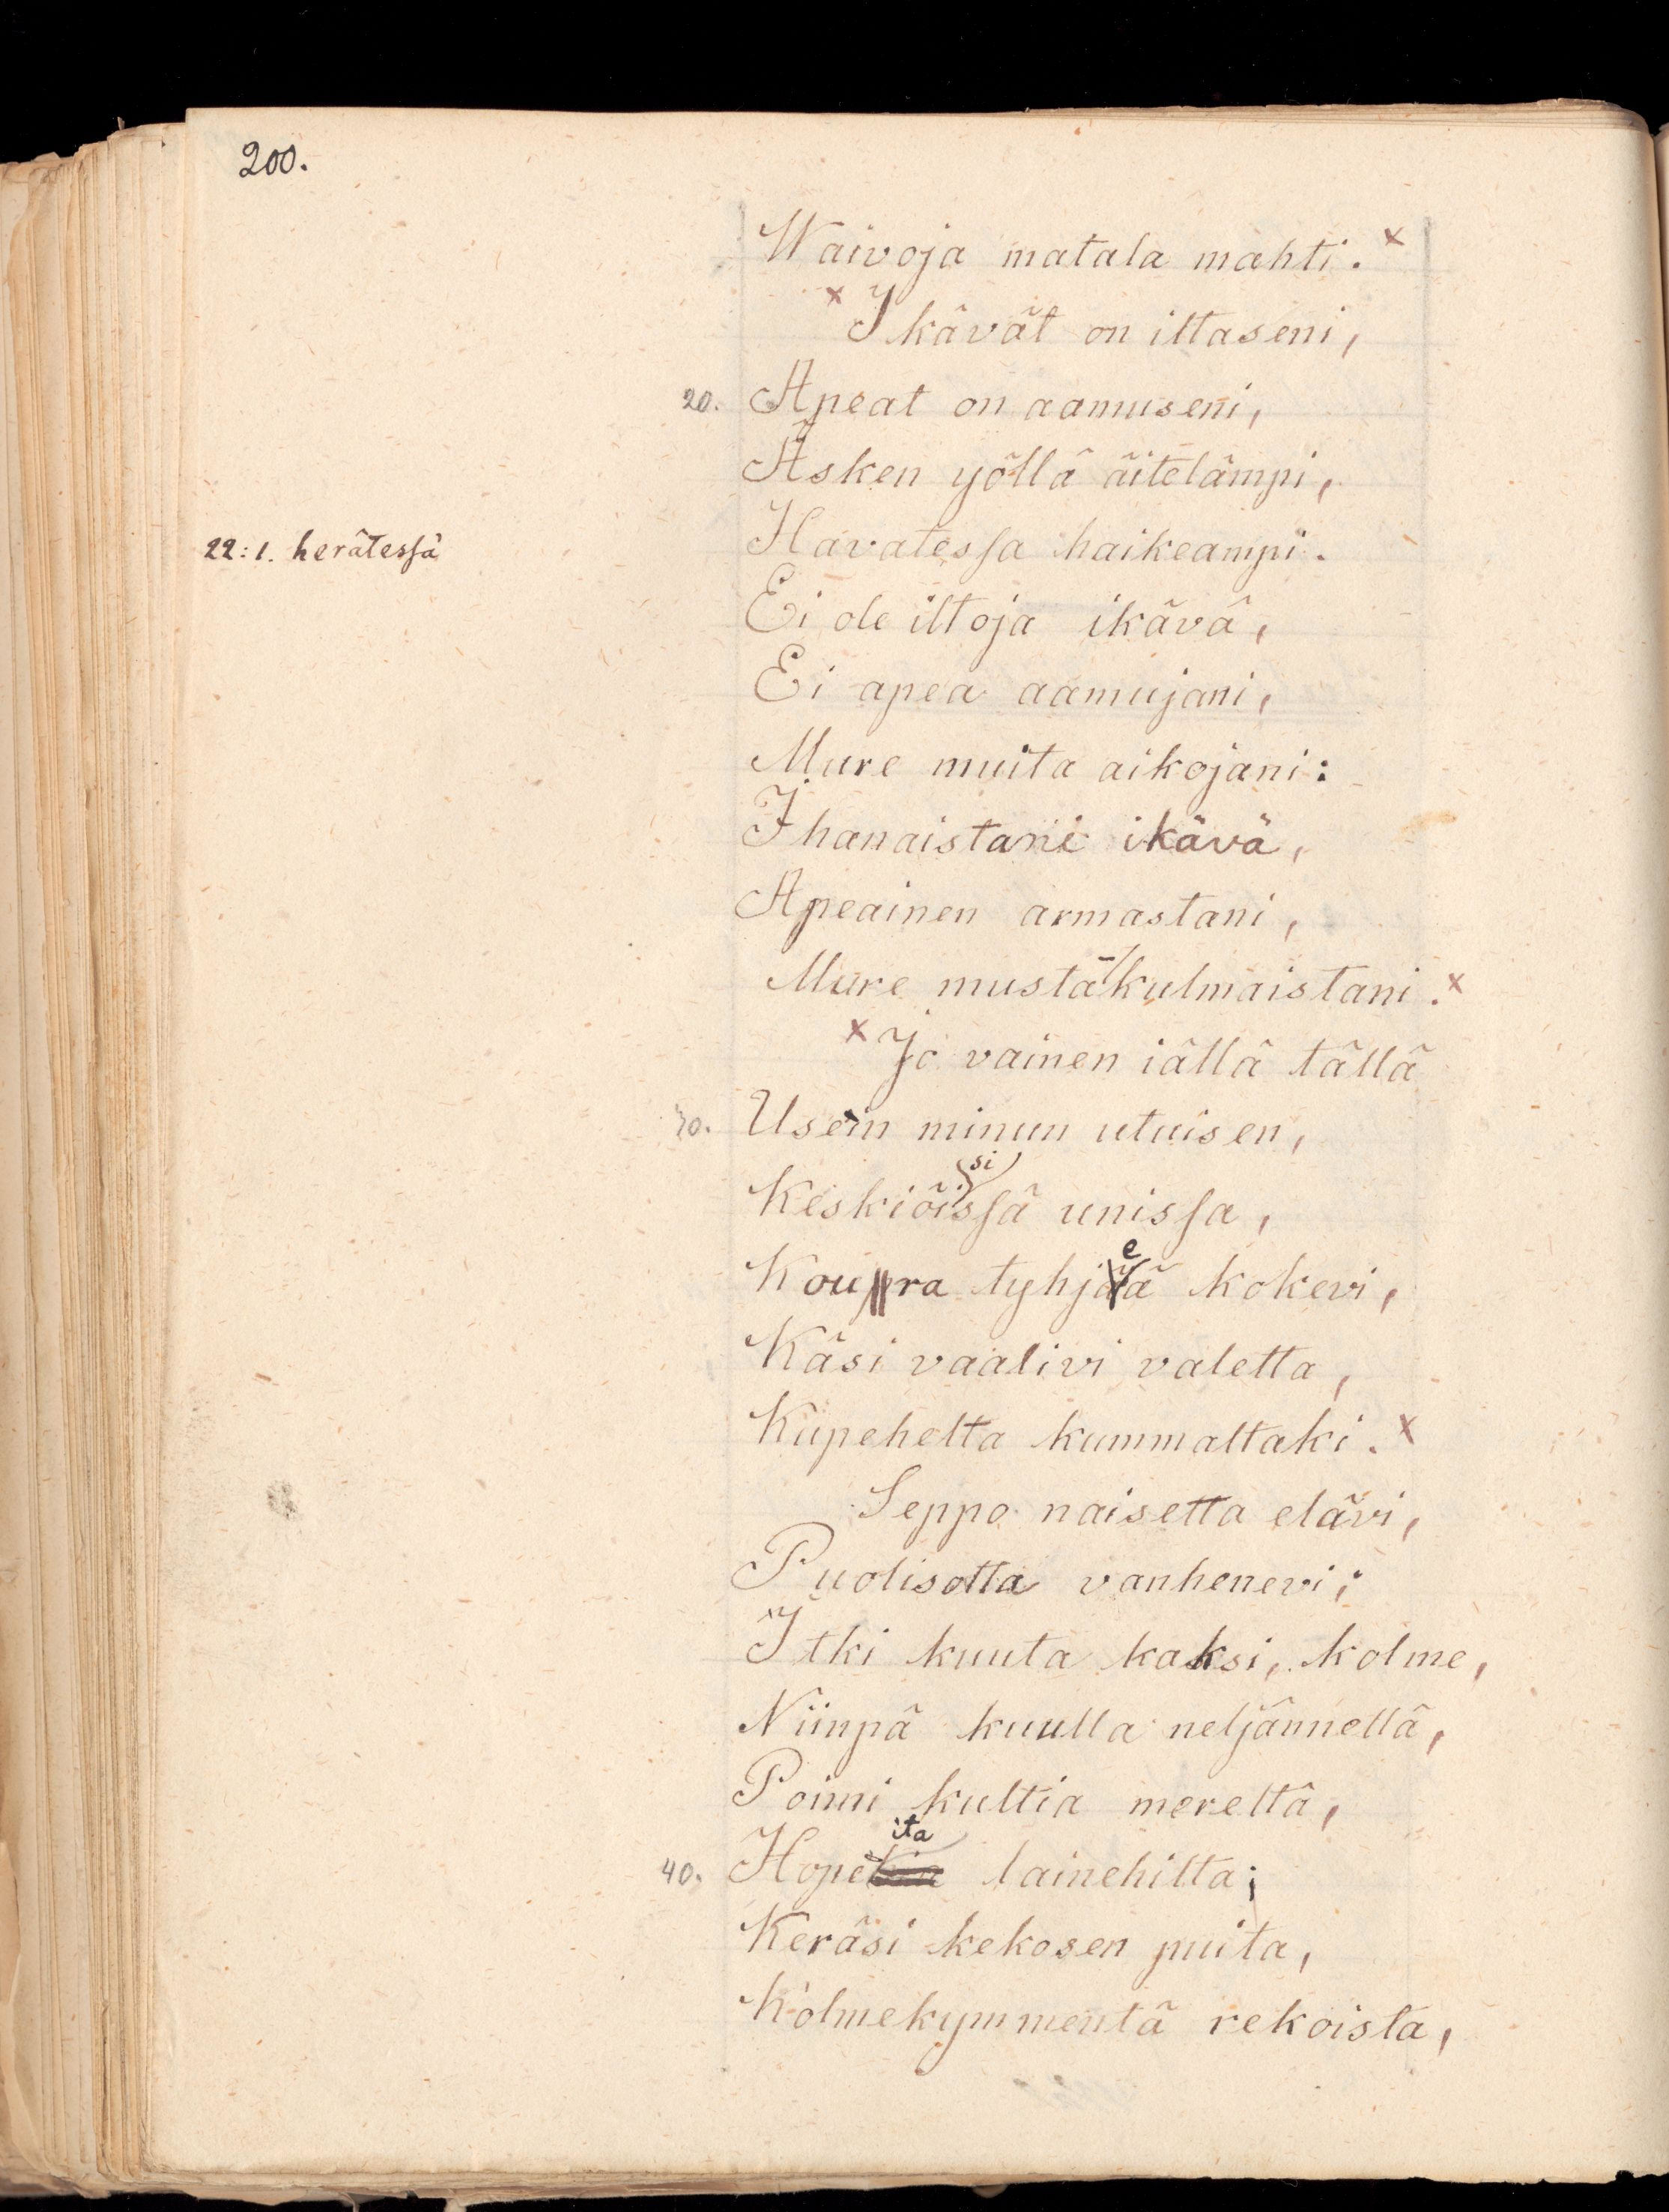 200.
Waivoja matala mahti. x
x Ikävät on iltaseni,
20. Apeat on aamuseni,
Äsken yöllä äitelämpi,
22:1. herätessä
Havatessa haikeampi.
Ei ole iltoja ikävä,
Ei apea aamujani,
Mure muita aikojani:
Ihanaistani ikävä,
Apeainen armastani,
Mure mustakulmaistani. x
x Jo vainen iällä tällä
30. Usein minun utuisen,
si
Keskiöissä unissa,
e
Koupra tyhjää kokevi,
Käsi vaalivi valetta,
Kupehelta kummaltaki. x
Seppo naisetta elävi,
Puolisotta vanhenevi;
Itki kuuta kaksi, kolme,
Niinpä kuulla neljännellä,
Poimi kultia mereltä,
ita
40. Hopekia lainehilta;
Keräsi kekosen puita,
Kolmekymmentä rekoista,